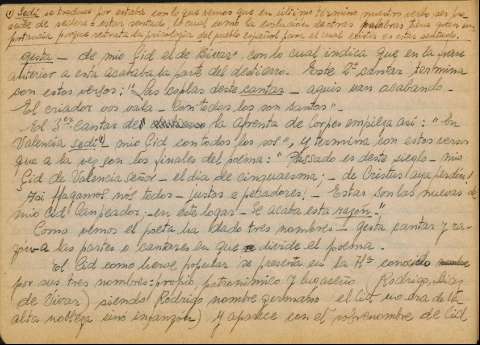 1) Sedi se traduce por estaba con lo que vemos que en último término nuestro verbo ser procede de sedere = estar sentado, lo cual como la evolución de otras palabras tiene gran importancia porque retrata la psicología del pueblo español para el cual existir es estar sentado.
gesta - de mio Çid el de Bivar", con lo cual indica que en la parte
anterior a esta acababa la parte del destierro. Este 2º cantar termina
con estos versos: "¡Las coplas deste cantar - aquis van acabando.-
El criador vos vala - con todos los sos santos".
El 3er cantar de la afrenta de Corpes empieza así: "En
Valencia sedi(1) mio Çid con todos los sos", y termina con estos versos
que a la vez son los finales del poema: "Passado es deste sieglo - mio
Çid de Valencia señor - el día de cinquaesma; - de Cristus aya perdón!
Así ffagamos nós todos - justos e pecadores; - Estas son las nuevas de
mio Çid Campeador; - en este logar - se acaba esta razón."
Como vemos el poeta ha dado tres nombres - gesta cantar y razón - a las partes o cantares en que se divide el poema.
El Cid como héroe popular se presenta en la Hª conocido
por sus tres nombres: propio, patronímico y lugareño (Rodrigo, Díaz
de Vivar) siendo Rodrigo nombre germano el Cid no era de la
alta nobleza sino infanzón) y aparece con el sobrenombre de Cid